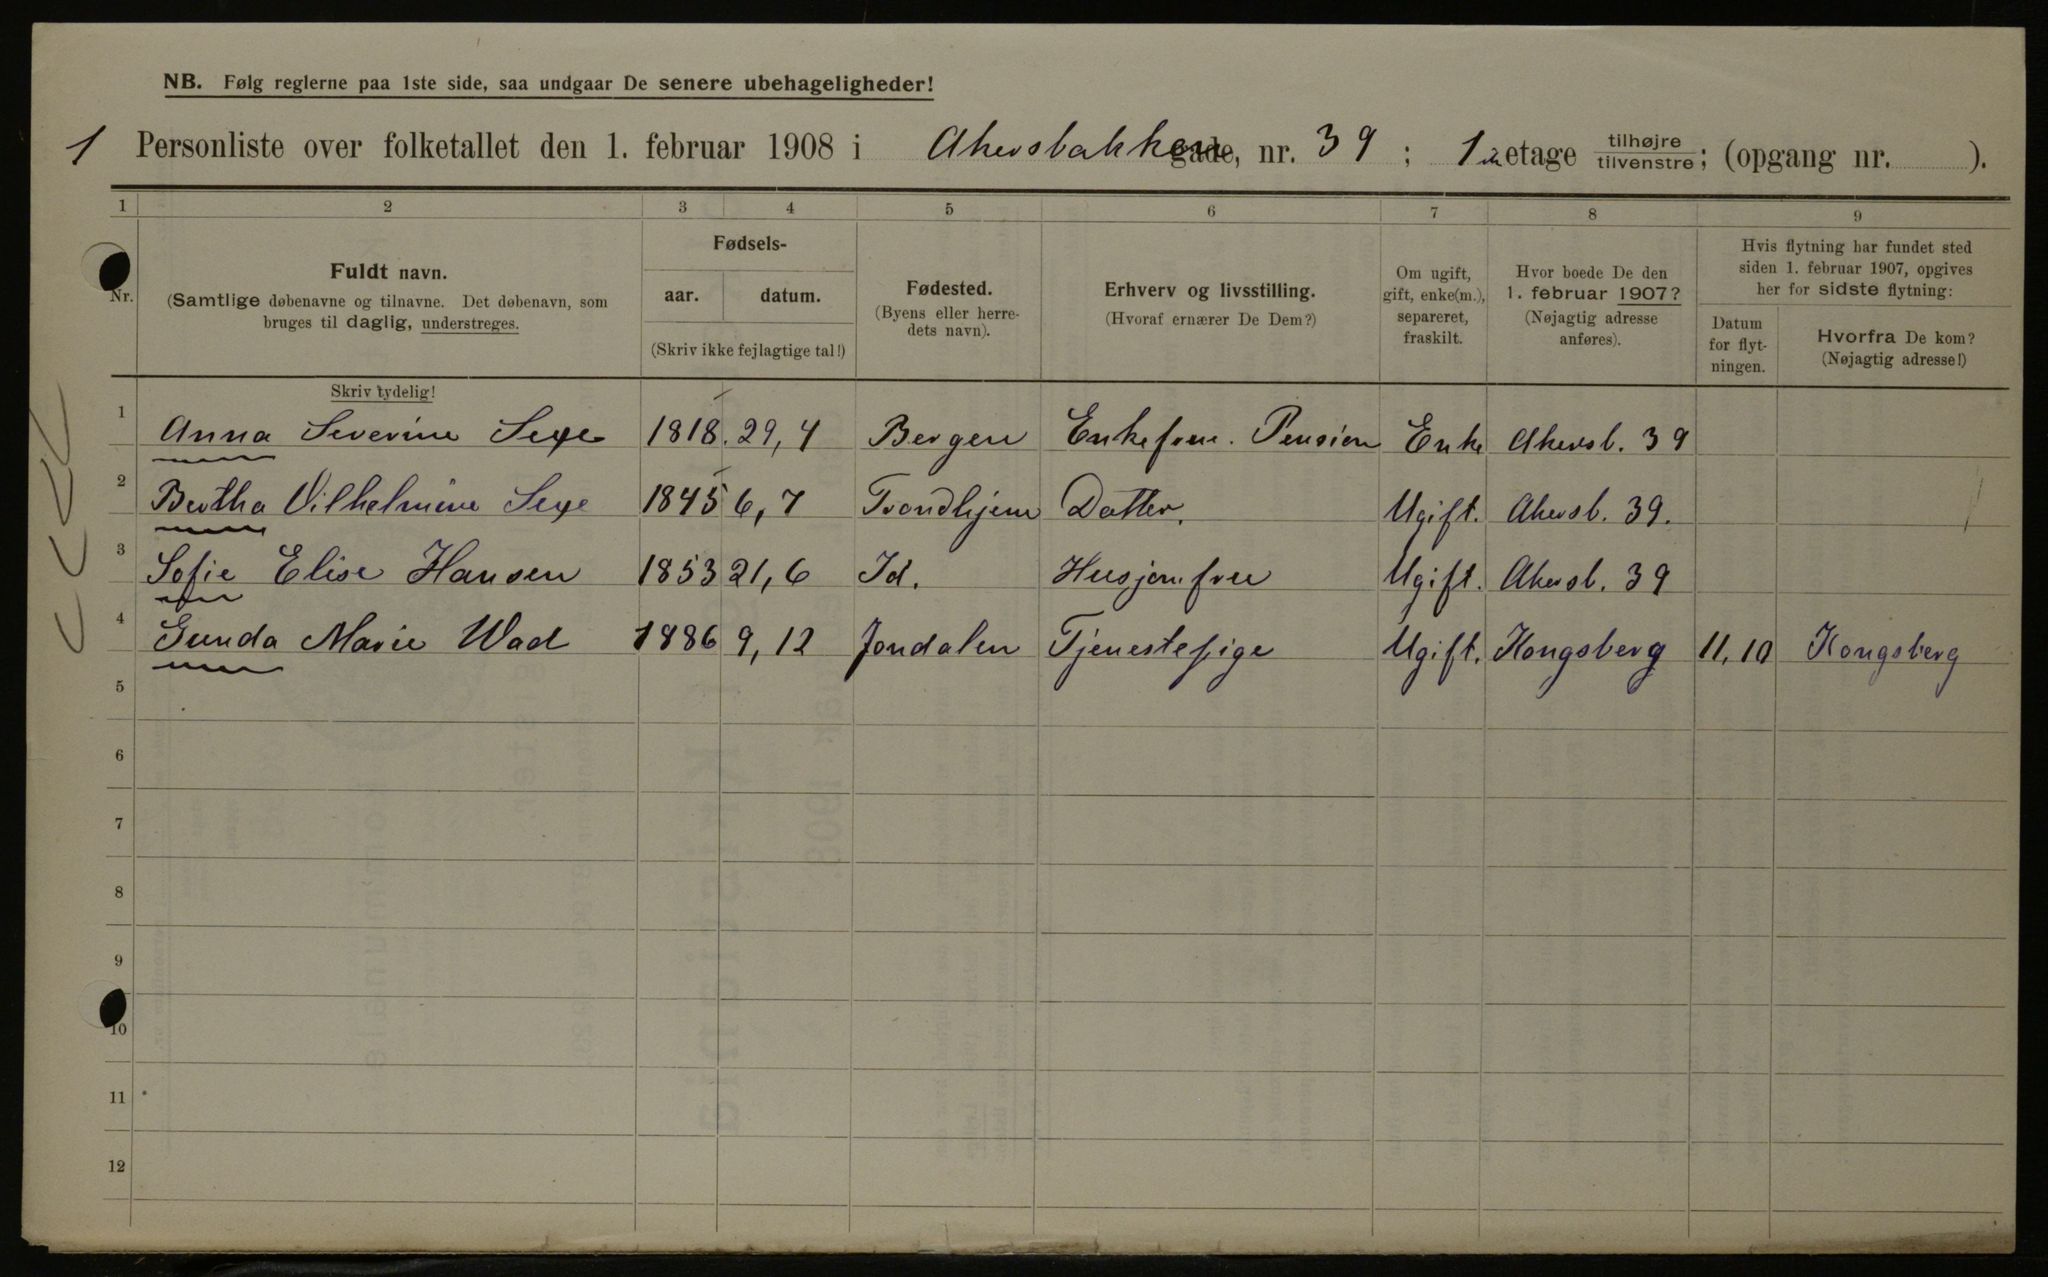 NB. Følg reglerne paa 1ste side, saa undgaar De senere ubehageligheder!
1 Personliste over folketallet den 1. februar 1908 i Akersbakken gade, nr. 39 ; 1 etage tilhøjre / tilvenstre ; (opgang nr. ).
1 2 3 4 5 6 7 8 9
Nr.
Fuldt navn.
(Samtlige døbenavne og tilnavne. Det døbenavn, som
bruges til daglig, understreges.
Skriv tydelig!
Fødsels-
aar. datum.
(Skriv ikke fejlagtige tal!)
Fødested.
(Byens eller herre-
dets navn).
Erhverv og livsstilling.
(Hvoraf ernærer De Dem?)
Om ugift,
gift, enke(m.),
separeret,
fraskilt.
Hvor boede De den
1. februar 1907?
(Nøjagtig adresse
anføres).
Hvis flytning har fundet sted
siden 1. februar 1907, opgives
her for sidste flytning:
Datum
for flyt-
ningen.
Hvorfra De kom?
(Nøjagtig adresse!)
1 Anna Severine Sexe 1818. 29, 4 Bergen Enkefrue. Pension Enke Akersb. 39
2 Bertha Vilhelmine Sexe 1845 6, 7 Trondhjem Datter. Ugift. Akersb. 39.
3 Sofie Elise Hansen 1853 21, 6 Id. Husjomfru Ugift. Akersb. 39
4 Gunda Marie Wad 1886 9, 12 Jondalen Tjenestepige Ugift. Kongsberg 11, 10 Kongsberg
5
6
7
8
9
10
11
12